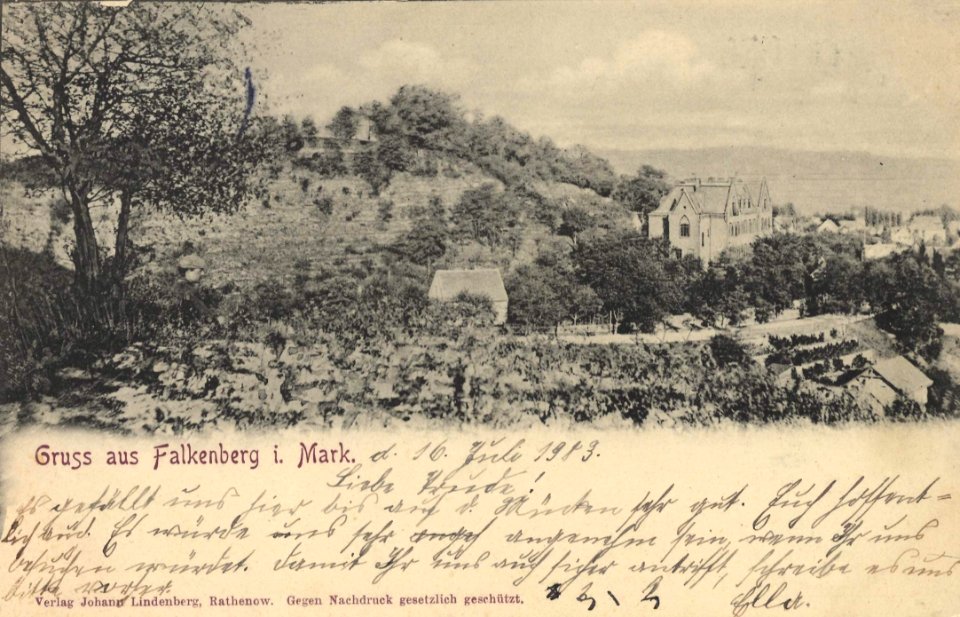 Gruss aus Falkenberg i. Mark. d. 16 Juli 1903.
Liebe Trude!
es gefällt uns hier bis auf d. Mücken sehr gut. Euch hoffent=
lich auch. Es würde uns sehr angenehm sein, wenn Ihr uns
besuchen würdet. Damit Ihr uns auch sicher antrifft, schreibe es uns
bitte vorher.
Ella.
Verlag Johann Lindenberg, Rathenow. Gegen Nachdruck gesetzlich geschützt.